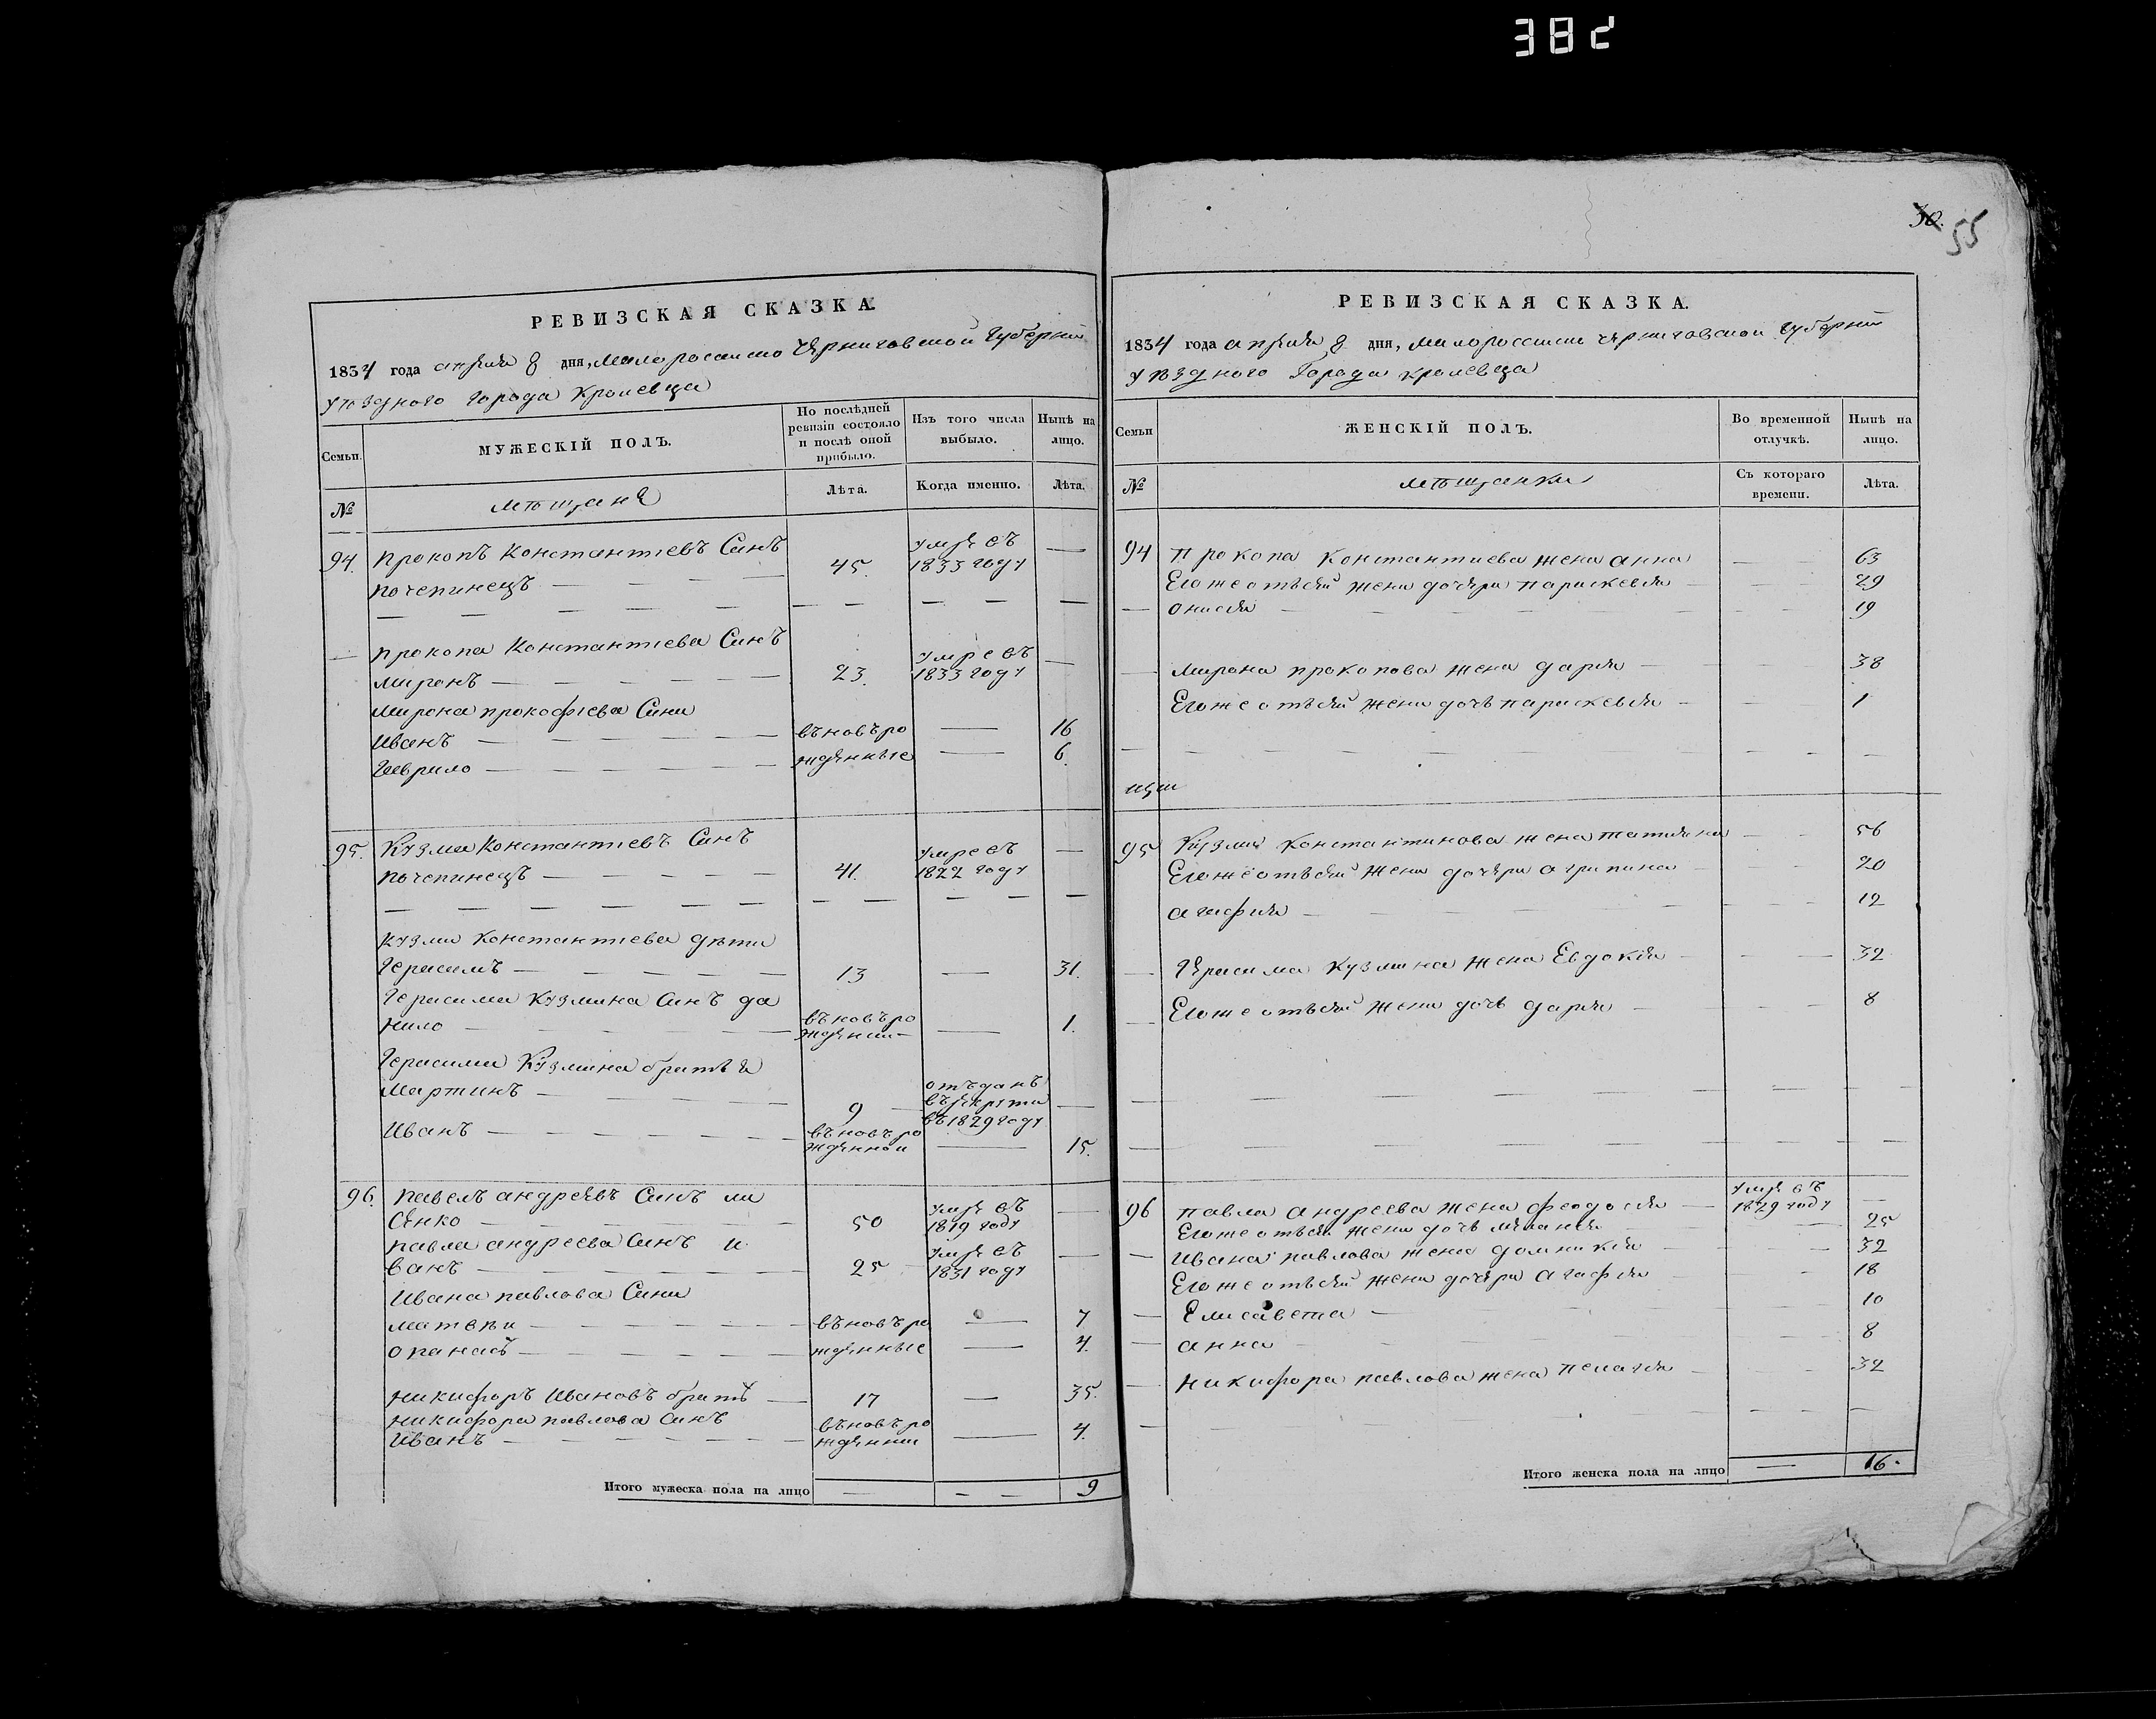 382
30. 55
РЕВИЗСКАЯ СКАЗКА.
1834 года апреля 8 дня, малороссиско Черниговской Губернии
уѣздного города Кролевца
Семьи.
МУЖЕСКІЙ ПОЛЪ.
По послѣдней
ревизіи состояло
и послѣ оной
прибыло.
Изъ того числа
выбыло.
Нынѣ на
лицо.
№
мѣщане
Лѣта.
Когда именно.
Лѣта.
94. Прокопъ Константіевъ Синъ
почепинецъ — 45. умре въ 1833 году —
— Прокопа Константіева Синъ
миронъ — 23. умре въ 1833 году —
Мирона прокофіева Сини
Иванъ — въновъро — 16
Гаврило — жденные — 6.
95. Кузма Константіевъ Синъ
почепинецъ — 41. умре въ 1822 году —
Кузми Константіева дѣти
Герасимъ — 13 — 31.
Герасима Кузмина Синъ да
нило — въновъро
жденни — 1.
Герасима Кузмина братья
Мартинъ — 9 отъданъ
въ рекруты
въ 1829 году —
Иванъ — въновъро
жденной — 15.
96. Павелъ андреевъ Синъ ли
Сенко — 50 умре въ 1819 году —
павла андреева Синъ и
ванъ — 25 умре въ 1831 году —
Ивана павлова Сини
матвѣи — въновъро — 7
опанасъ — жденные — 4.
Никифоръ Ивановъ братъ — 17 — 35.
Никифора павлова Синъ
Иванъ — въновъро
жденни — 4.
Итого мужеска пола на лицо — — — 9
РЕВИЗСКАЯ СКАЗКА.
1834 года апреля 8 дня, малороссиско черниговской Губернии
уѣздного Города кролевца
Семьи
ЖЕНСКІЙ ПОЛЪ.
Во временной
отлучкѣ.
Нынѣ на
лицо.
№
мѣщанки
Съ котораго
времени.
Лѣта.
94 Прокопа Константиева жена анна — 63
Его же отъ сей жени дочери парискевия — 29
— онисия — 19
— Мирона прокопова жена дария — 38
Его же отъ сей жени дочъ парискевия — 1
95 Кузми Константинова жена татияна — 56
Его же отъ сей жени дочери агрипина — 20
агафия — 12
— Герасима Кузмина жена Евдокія — 32
— Его же отъ сей жени дочъ дария — 8
96 павла андреева жена феодосия — умре въ
1829 году —
Его же отъ сей жени дочъ мелания — 25
— Ивана павлова жена домникія — 32
Его же отъ сей жени дочери агафия — 18
— Елисавета — 10
— анна — 8
— никифора павлова жена пелагия — 32
Итого женска пола на лицо — 16.